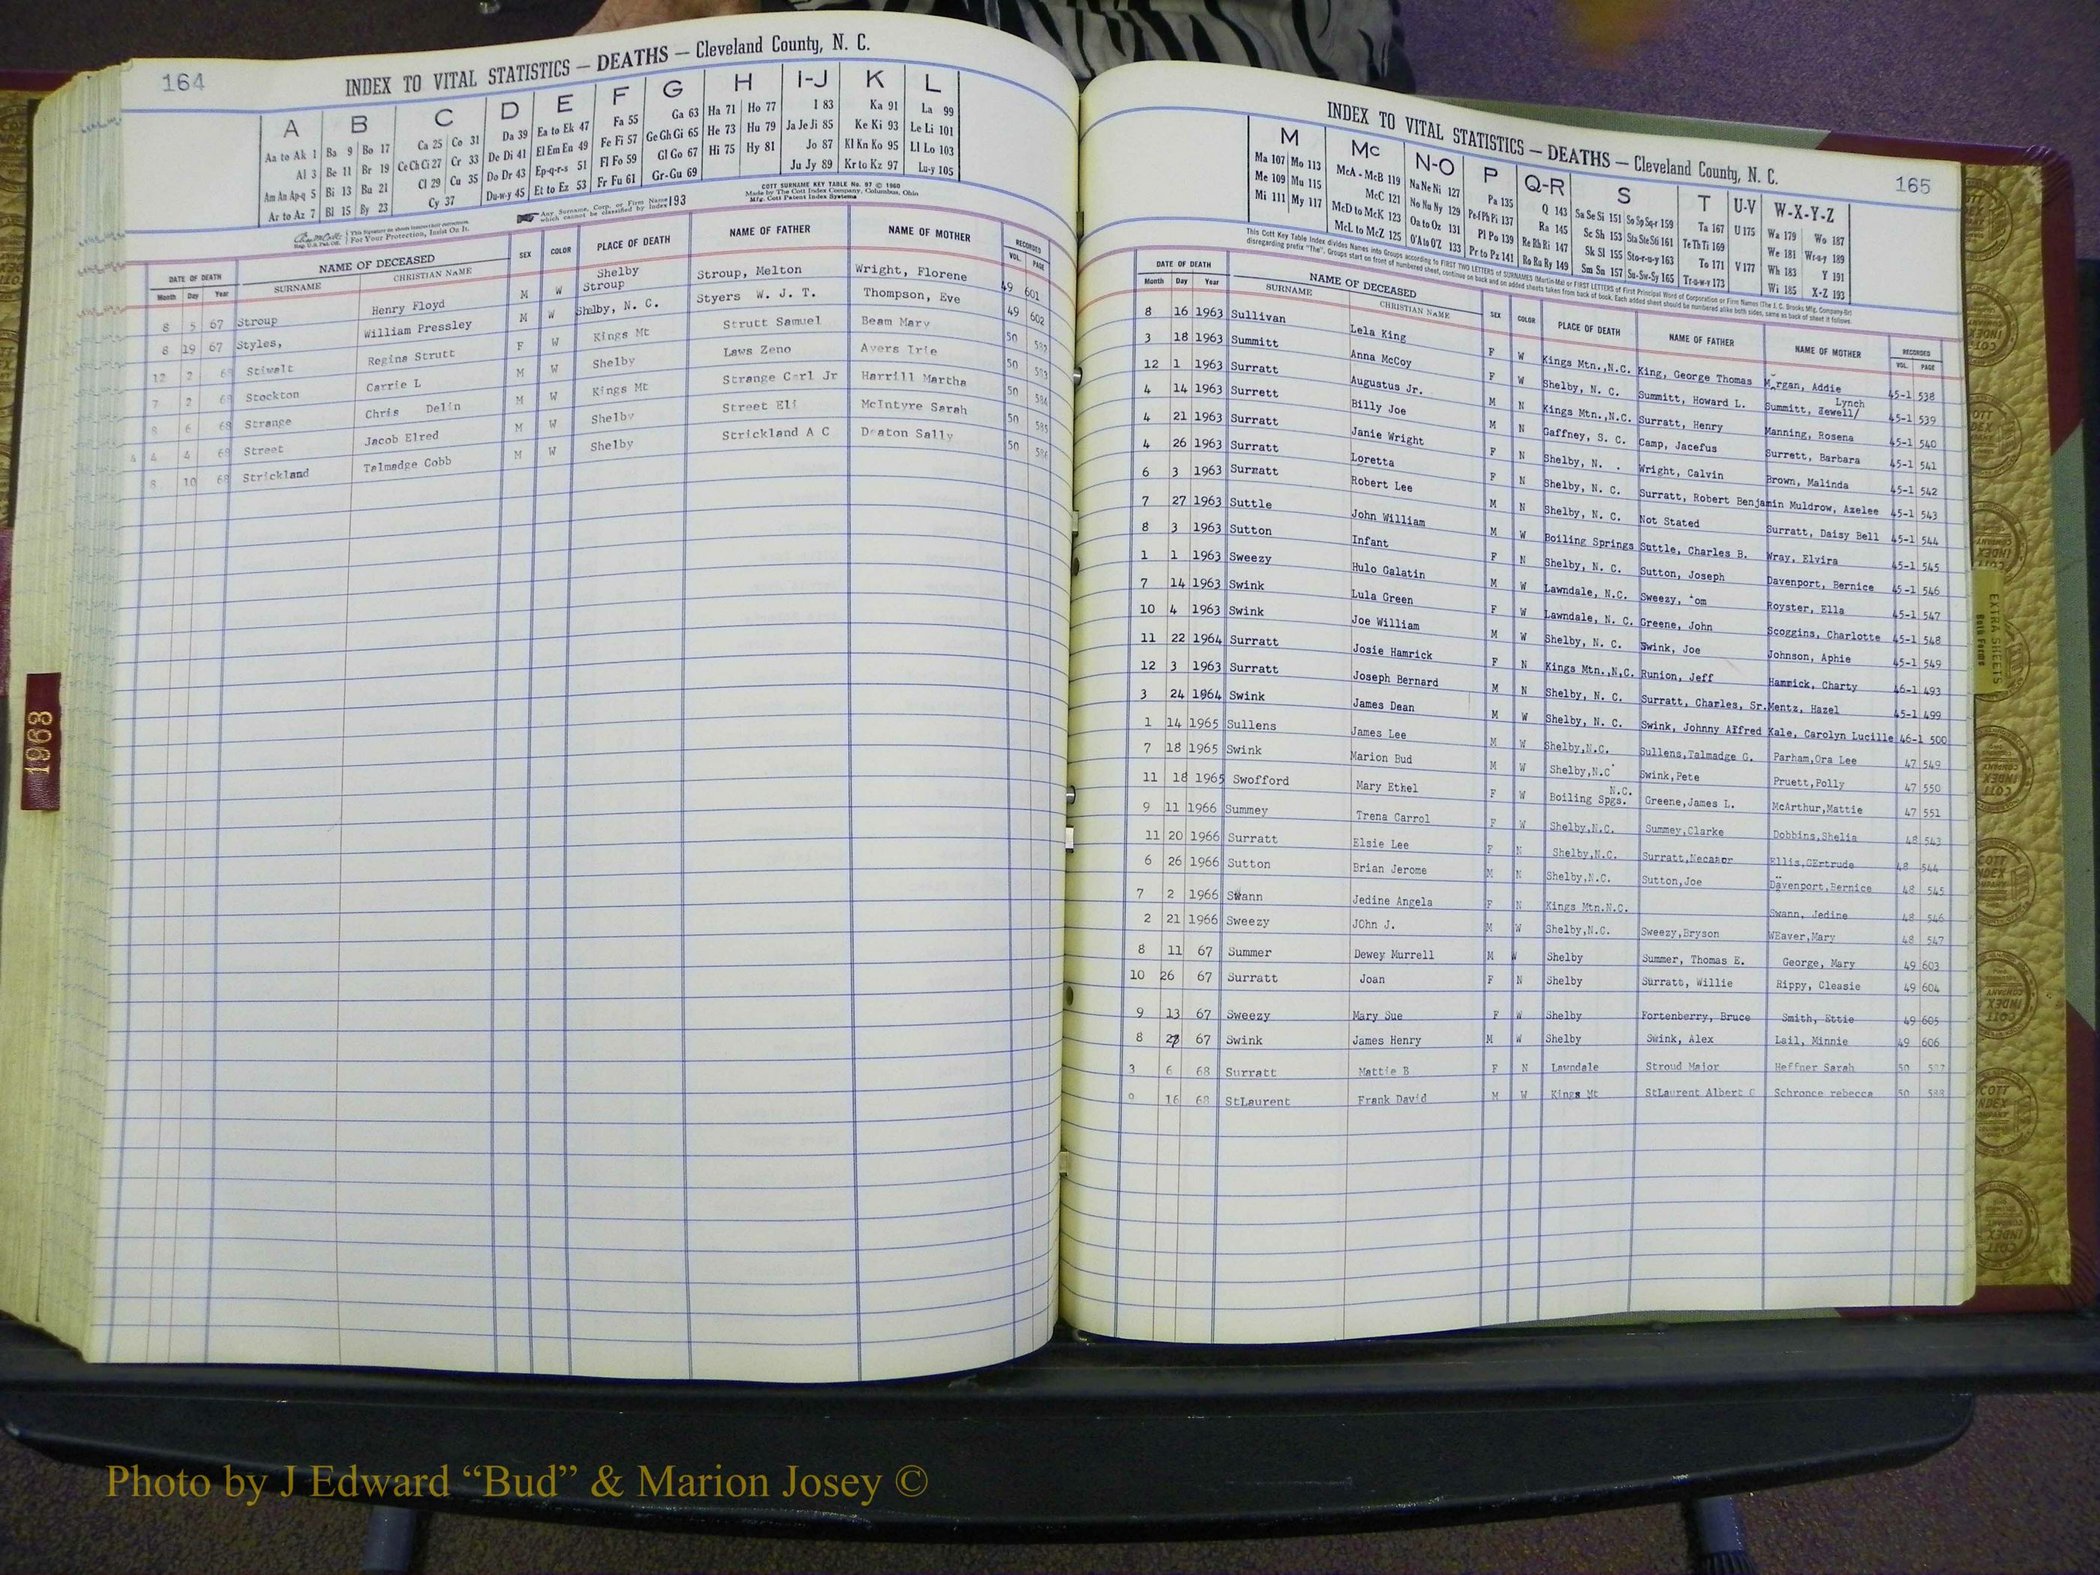 164
INDEX TO VITAL STATISTICS — DEATHS — Cleveland County, N. C.
A B C D E F G H I-J K L
Aa to Ak 1 Ba 9 Bo 17 Ca 25 Co 31 Da 39 Ea to Ek 47 Fa 55 Ga 63 Ha 71 Ho 77 I 83 Ka 91 La 99
Al 3 Be 11 Br 19 Ce Ch Ci 27 Cr 33 De Di 41 El Em En 49 Fe Fi 57 Ge Gh Gi 65 He 73 Hu 79 Ja Je Ji 85 Ke Ki 93 Le Li 101
Am An Ap-q 5 Bi 13 Bu 21 Cl 29 Cu 35 Do Dr 43 Ep-q-r-s 51 Fl Fo 59 Gl Go 67 Hi 75 Hy 81 Jo 87 Kl Kn Ko 95 Ll Lo 103
Ar to Az 7 Bl 15 By 23 Cy 37 Du-w-y 45 Et to Ez 53 Fr Fu 61 Gr-Gu 69 Ju Jy 89 Kr to Kz 97 Lu-y 105
COTT SURNAME KEY TABLE No. 97 © 1960
Made by The Cott Index Company, Columbus, Ohio
Mfg. Cott Patent Index Systems
Any Surname, Corp. or Firm Name which cannot be classified by Index 193
For Your Protection, Insist On It.
DATE OF DEATH NAME OF DECEASED SEX COLOR PLACE OF DEATH NAME OF FATHER NAME OF MOTHER RECORDED
Month Day Year SURNAME CHRISTIAN NAME VOL. PAGE
8 5 67 Stroup Henry Floyd M W Shelby Stroup, Melton Wright, Florene 49 601
Stroup
8 19 67 Styles, William Pressley M W Shelby, N. C. Styers W. J. T. Thompson, Eve 49 602
12 2 68 Stiwalt Regina Strutt F W Kings Mt Strutt Samuel Beam Mary 50 582
7 2 68 Stockton Carrie L M W Shelby Laws Zeno Ayers Irie 50 583
8 6 68 Strange Chris Delin M W Kings Mt Strange Carl Jr Harrill Martha 50 584
4 4 68 Street Jacob Elred M W Shelby Street Eli McIntyre Sarah 50 585
8 10 68 Strickland Talmadge Cobb M W Shelby Strickland A C Deaton Sally 50 586
1968
165
INDEX TO VITAL STATISTICS — DEATHS — Cleveland County, N. C.
M Mc N-O P Q-R S T U-V W-X-Y-Z
Ma 107 Mo 113 McA - McB 119 Na Ne Ni 127 Pa 135 Q 143 Sa Se Si 151 So Sp Sq-r 159 Ta 167 U 175 Wa 179 Wo 187
Me 109 Mu 115 McC 121 No Nu Ny 129 Pe-f Ph Pi 137 Ra 145 Sc Sh 153 Sta Ste Sti 161 Te Th Ti 169 We 181 Wr-u-y 189
Mi 111 My 117 McD to McK 123 Oa to Oz 131 Pl Po 139 Re Rh Ri 147 Sk Sl 155 Sto-r-u-y 163 To 171 V 177 Wh 183 Y 191
McL to McZ 125 O'A to O'Z 133 Pr to Pz 141 Ro Ru Ry 149 Sm Sn 157 Su-Sw-Sy 165 Tr-u-w-y 173 Wi 185 X-Z 193
This Cott Key Table Index divides Names into Groups according to FIRST TWO LETTERS of SURNAMES (Martin-Ma) or FIRST LETTERS of First Principal Word of Corporation or Firm Names (The J. C. Brooks Mfg. Company-Br)
disregarding prefix "The". Groups start on front of numbered sheet, continue on back and on added sheets taken from back of book. Each added sheet should be numbered alike both sides, same as back of sheet it follows.
DATE OF DEATH NAME OF DECEASED SEX COLOR PLACE OF DEATH NAME OF FATHER NAME OF MOTHER RECORDED
Month Day Year SURNAME CHRISTIAN NAME VOL. PAGE
8 16 1963 Sullivan Lela King F W Kings Mtn.,N.C. King, George Thomas Morgan, Addie 45-1 538
3 18 1963 Summitt Anna McCoy F W Shelby, N. C. Summitt, Howard L. Summitt, Zewell/ Lynch 45-1 539
12 1 1963 Surratt Augustus Jr. M N Kings Mtn.,N.C. Surratt, Henry Manning, Rosena 45-1 540
4 14 1963 Surrett Billy Joe M N Gaffney, S. C. Camp, Jacefus Surrett, Barbara 45-1 541
4 21 1963 Surratt Janie Wright F N Shelby, N. . Wright, Calvin Brown, Malinda 45-1 542
4 26 1963 Surratt Loretta F N Shelby, N. C. Surratt, Robert Benjamin Muldrow, Azelee 45-1 543
6 3 1963 Surratt Robert Lee M N Shelby, N. C. Not Stated Surratt, Daisy Bell 45-1 544
7 27 1963 Suttle John William M W Boiling Springs Suttle, Charles B. Wray, Elvira 45-1 545
8 3 1963 Sutton Infant F N Shelby, N. C. Sutton, Joseph Davenport, Bernice 45-1 546
1 1 1963 Sweezy Hulo Galatin M W Lawndale, N.C. Sweezy, Tom Royster, Ella 45-1 547
7 14 1963 Swink Lula Green F W Lawndale, N. C. Greene, John Scoggins, Charlotte 45-1 548
10 4 1963 Swink Joe William M W Shelby, N. C. Swink, Joe Johnson, Aphie 45-1 549
11 22 1964 Surratt Josie Hamrick F N Kings Mtn.,N.C. Runion, Jeff Hamrick, Charty 46-1 493
12 3 1963 Surratt Joseph Bernard M N Shelby, N. C. Surratt, Charles, Sr. Mentz, Hazel 45-1 499
3 24 1964 Swink James Dean M W Shelby, N. C. Swink, Johnny Alfred Kale, Carolyn Lucille 46-1 500
1 14 1965 Sullens James Lee M W Shelby,N.C. Sullens,Talmadge G. Parham,Ora Lee 47 549
7 18 1965 Swink Marion Bud M W Shelby,N.C Swink,Pete Pruett,Polly 47 550
11 18 1965 Swofford Mary Ethel F W Boiling Spgs. N.C. Greene,James L. McArthur,Mattie 47 551
9 11 1966 Summey Trena Carrol F W Shelby,N.C. Summey,Clarke Dobbins,Shelia 48 543
11 20 1966 Surratt Elsie Lee F N Shelby,N.C. Surratt,Necanor Ellis,GErtrude 48 544
6 26 1966 Sutton Brian Jerome M N Shelby,N.C. Sutton,Joe Davenport,Bernice 48 545
7 2 1966 Swann Jedine Angela F N Kings Mtn.N.C. Swann, Jedine 48 546
2 21 1966 Sweezy JOhn J. M W Shelby,N.C. Sweezy,Bryson WEaver,Mary 48 547
8 11 67 Summer Dewey Murrell M W Shelby Summer, Thomas E. George, Mary 49 603
10 26 67 Surratt Joan F N Shelby Surratt, Willie Rippy, Cleasie 49 604
9 13 67 Sweezy Mary Sue F W Shelby Fortenberry, Bruce Smith, Ettie 49 605
8 27 67 Swink James Henry M W Shelby Swink, Alex Lail, Minnie 49 606
3 6 68 Surratt Mattie B F N Lawndale Stroud Major Heffner Sarah 50 587
9 16 68 StLaurent Frank David M W Kings Mt StLaurent Albert G Schronce rebecca 50 588
EXTRA SHEETS
Both Forms
Photo by J Edward “Bud” & Marion Josey ©